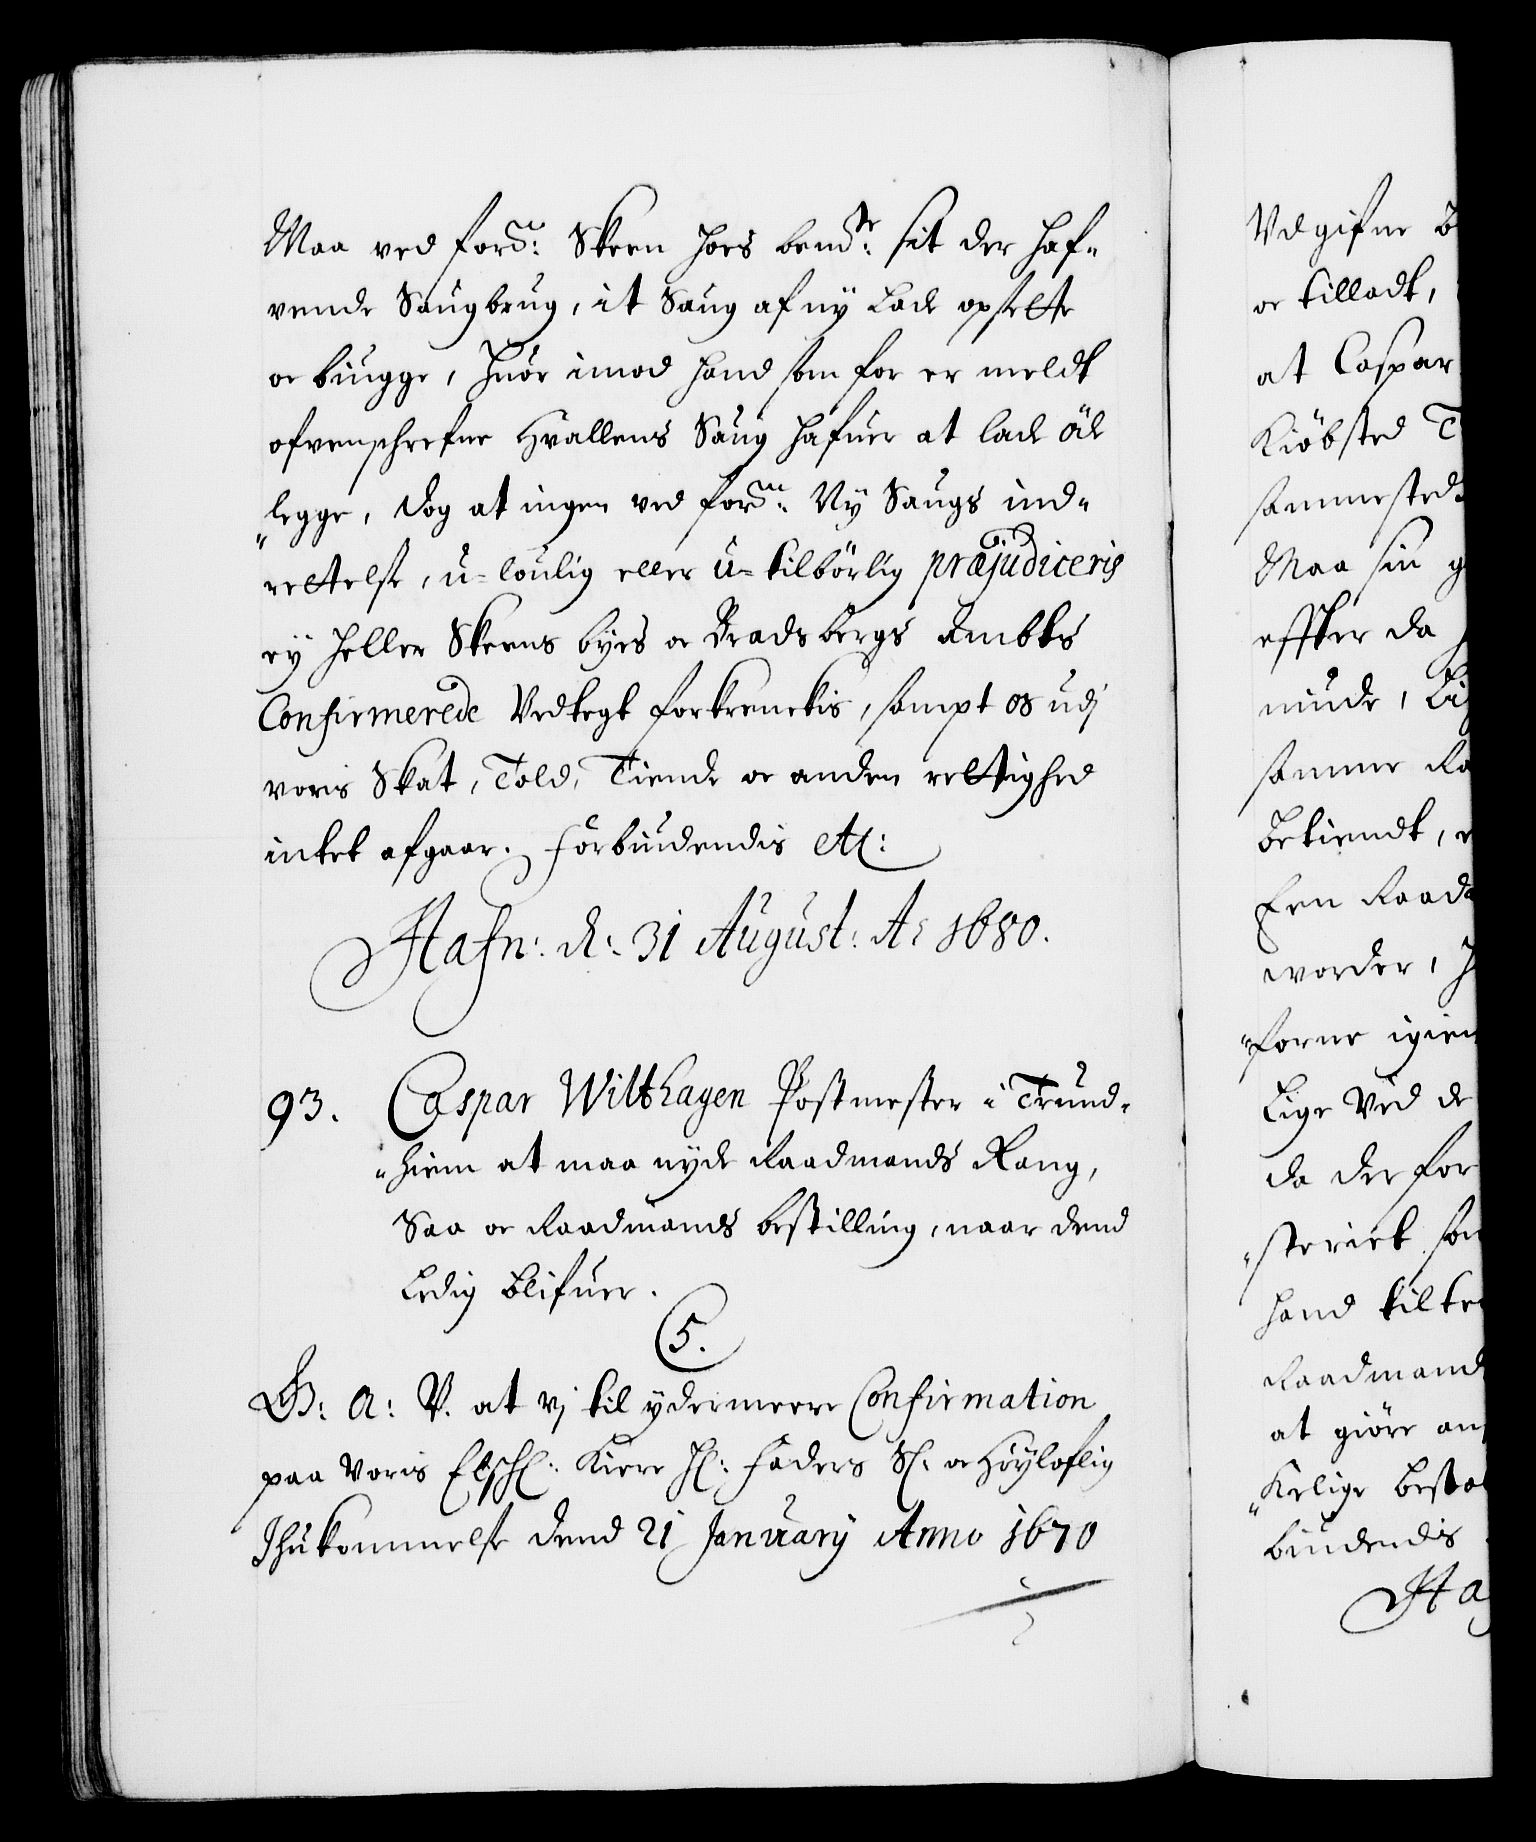 Maa ved ford:ne Skeen hoes bemd:te sit der haf-
vende Saugbrug, it Saug af ny Lade opsette
oc biugge, huor imod hand som for er meldt
ofvenschrefne Hvallens Saug hafuer at lade öde
„legge, dog at ingen ved ford:ne Ny Saugs ind-
rettelse, u-loulig eller u-tilbörlig præjudiceris
ey heller Skeens byes oc Bradsbergs Ambtes
Confirmerede Vedtegt forkrenckis, sampt os udj
voris Skat, Told, Tiende oc anden rettighed
intet afgaar. Forbiudendis etc:
Hafn: d: 31 August: Ao 1680.
93. Caspar Wilthagen Postmester i Trund-
„hiem at maa nyde Raadmands Rang,
Saa oc Raadmands bestilling, naar dend
Ledig blifuer.
C5.
G: A: V. at vj til ydermeere Confirmation
paa Voris Elschl: Kiere Hr: Faders Sl: oc Höyloflig
Ihukommelse dend 21 January Anno 1670
Vdgifne
oc tilladt,
at Caspar
Kiöbsted T
sammesteds
Maa sin g
effter da
miude, Li
samme Ra
bekiendt,
Een Raad
worder, h
„forne igien
Lige Ved de
da der for
„sterict som
hand tiltre
Raadmand
at giöre an
„Kelige besta
biudendis
Ha